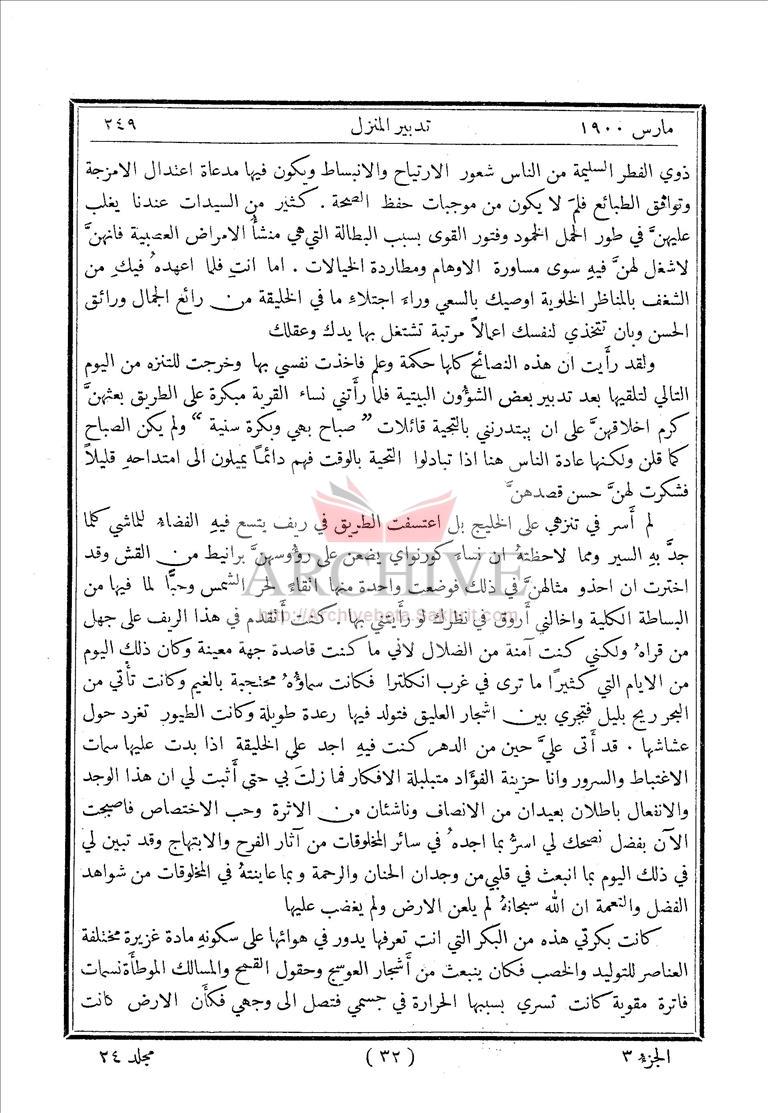 مارس ١٩٠٠ تدبير المنزل ٢٤٩
ذوي الفطر السليمة من الناس شعور الارتياح والانبساط ويكون فيها مدعاة اعتدال الامزجة
وتوافق الطبائع فلمَ لا يكون من موجبات حفظ الصحة . كثير من السيدات عندنا يغلب
عليهنَّ في طور الحمل الخمود وفتور القوى بسبب البطالة التي هي منشأُ الامراض العصبية فانهنَّ
لاشغل لهنَّ فيهِ سوى مساورة الاوهام ومطاردة الخيالات . اما انتِ فلما اعهدهُ فيكِ من
الشغف بالمناظر الخلوية اوصيك بالسعي وراءَ اجتلاءِ ما في الخليقة من رائع الجمال ورائق
الحسن وبان تتخذي لنفسك اعمالاً مرتبة تشتغل بها يدك وعقلك
ولقد رأَيت ان هذه النصائح كلها حكمة وعلم فاخذت نفسي بها وخرجت للتنزه من اليوم
التالي لتلقيها بعد تدبير بعض الشؤُون البيتية فلما رأَتني نساء القرية مبكرة على الطريق بعثهنَّ
كرم اخلاقهنَّ على ان يبتدرنني بالتحية قائلات " صباح بهي وبكرة سنية " ولم يكن الصباح
كما قلن ولكنها عادة الناس هنا اذا تبادلوا التحية بالوقت فهم دائمًا يميلون الى امتداحهِ قليلاً
فشكرت لهنَّ حسن قصدهنَّ
لم أَسر في تنزهي على الخليج بل اعتسفت الطريق في ريف يتسع فيهِ الفضاءُ للماشي كلما
جدَّ بهِ السير ومما لاحظتهُ ان نساءَ كورنواي يضعن على رؤُوسهنَّ برانيط من القش وقد
ARCHIVE
اخترت ان احذو مثالهنَّ في ذلك فوضعت واحدة منها اتقاءً لحر الشمس وحبًّا لما فيها من
http://Archivebeta.Sakhrit.com
البساطة الكلية واخالني أَروق في نظرك لو رأَيتني بها . كنت أَتقدم في هذا الريف على جهل
من قراهُ ولكني كنت آمنة من الضلال لاني ما كنت قاصدة جهة معينة وكان ذلك اليوم
من الايام التي كثيرًا ما ترى في غرب انكلترا فكانت سماؤُهُ محتجبة بالغيم وكانت تأْتي من
البحر ريح بليل فتجري بين اشجار العليق فتولد فيها رعدة طويلة وكانت الطيور تغرد حول
عشاشها . قد أَتى عليَّ حين من الدهر كنت فيهِ اجد على الخليقة اذا بدت عليها سمات
الاغتباط والسرور وانا حزينة الفؤَاد متبلبلة الافكار فما زلتَ بي حتى أَثبت لي ان هذا الوجد
والانفعال باطلان بعيدان من الانصاف وناشئان من الاثرة وحب الاختصاص فاصبحت
الآن بفضل نصحك لي اسرُّ بما اجدهُ في سائر المخلوقات من آثار الفرح والابتهاج وقد تبين لي
في ذلك اليوم بما انبعث في قلبي من وجدان الحنان والرحمة وبما عاينتهُ في المخلوقات من شواهد
الفضل والنعمة ان الله سبحانهُ لم يلعن الارض ولم يغضب عليها
كانت بكرتي هذه من البكر التي انت تعرفها يدور في هوائها على سكونهِ مادة غزيرة مختلفة
العناصر للتوليد والخصب فكان ينبعث من أَشجار العوسج وحقول القمح والمسالك الموطأَة نسمات
فاترة مقوية كانت تسري بسببها الحرارة في جسمي فتصل الى وجهي فكأَن الارض كانت
الجزء ٣ ( ٣٢ ) مجلد ٢٤